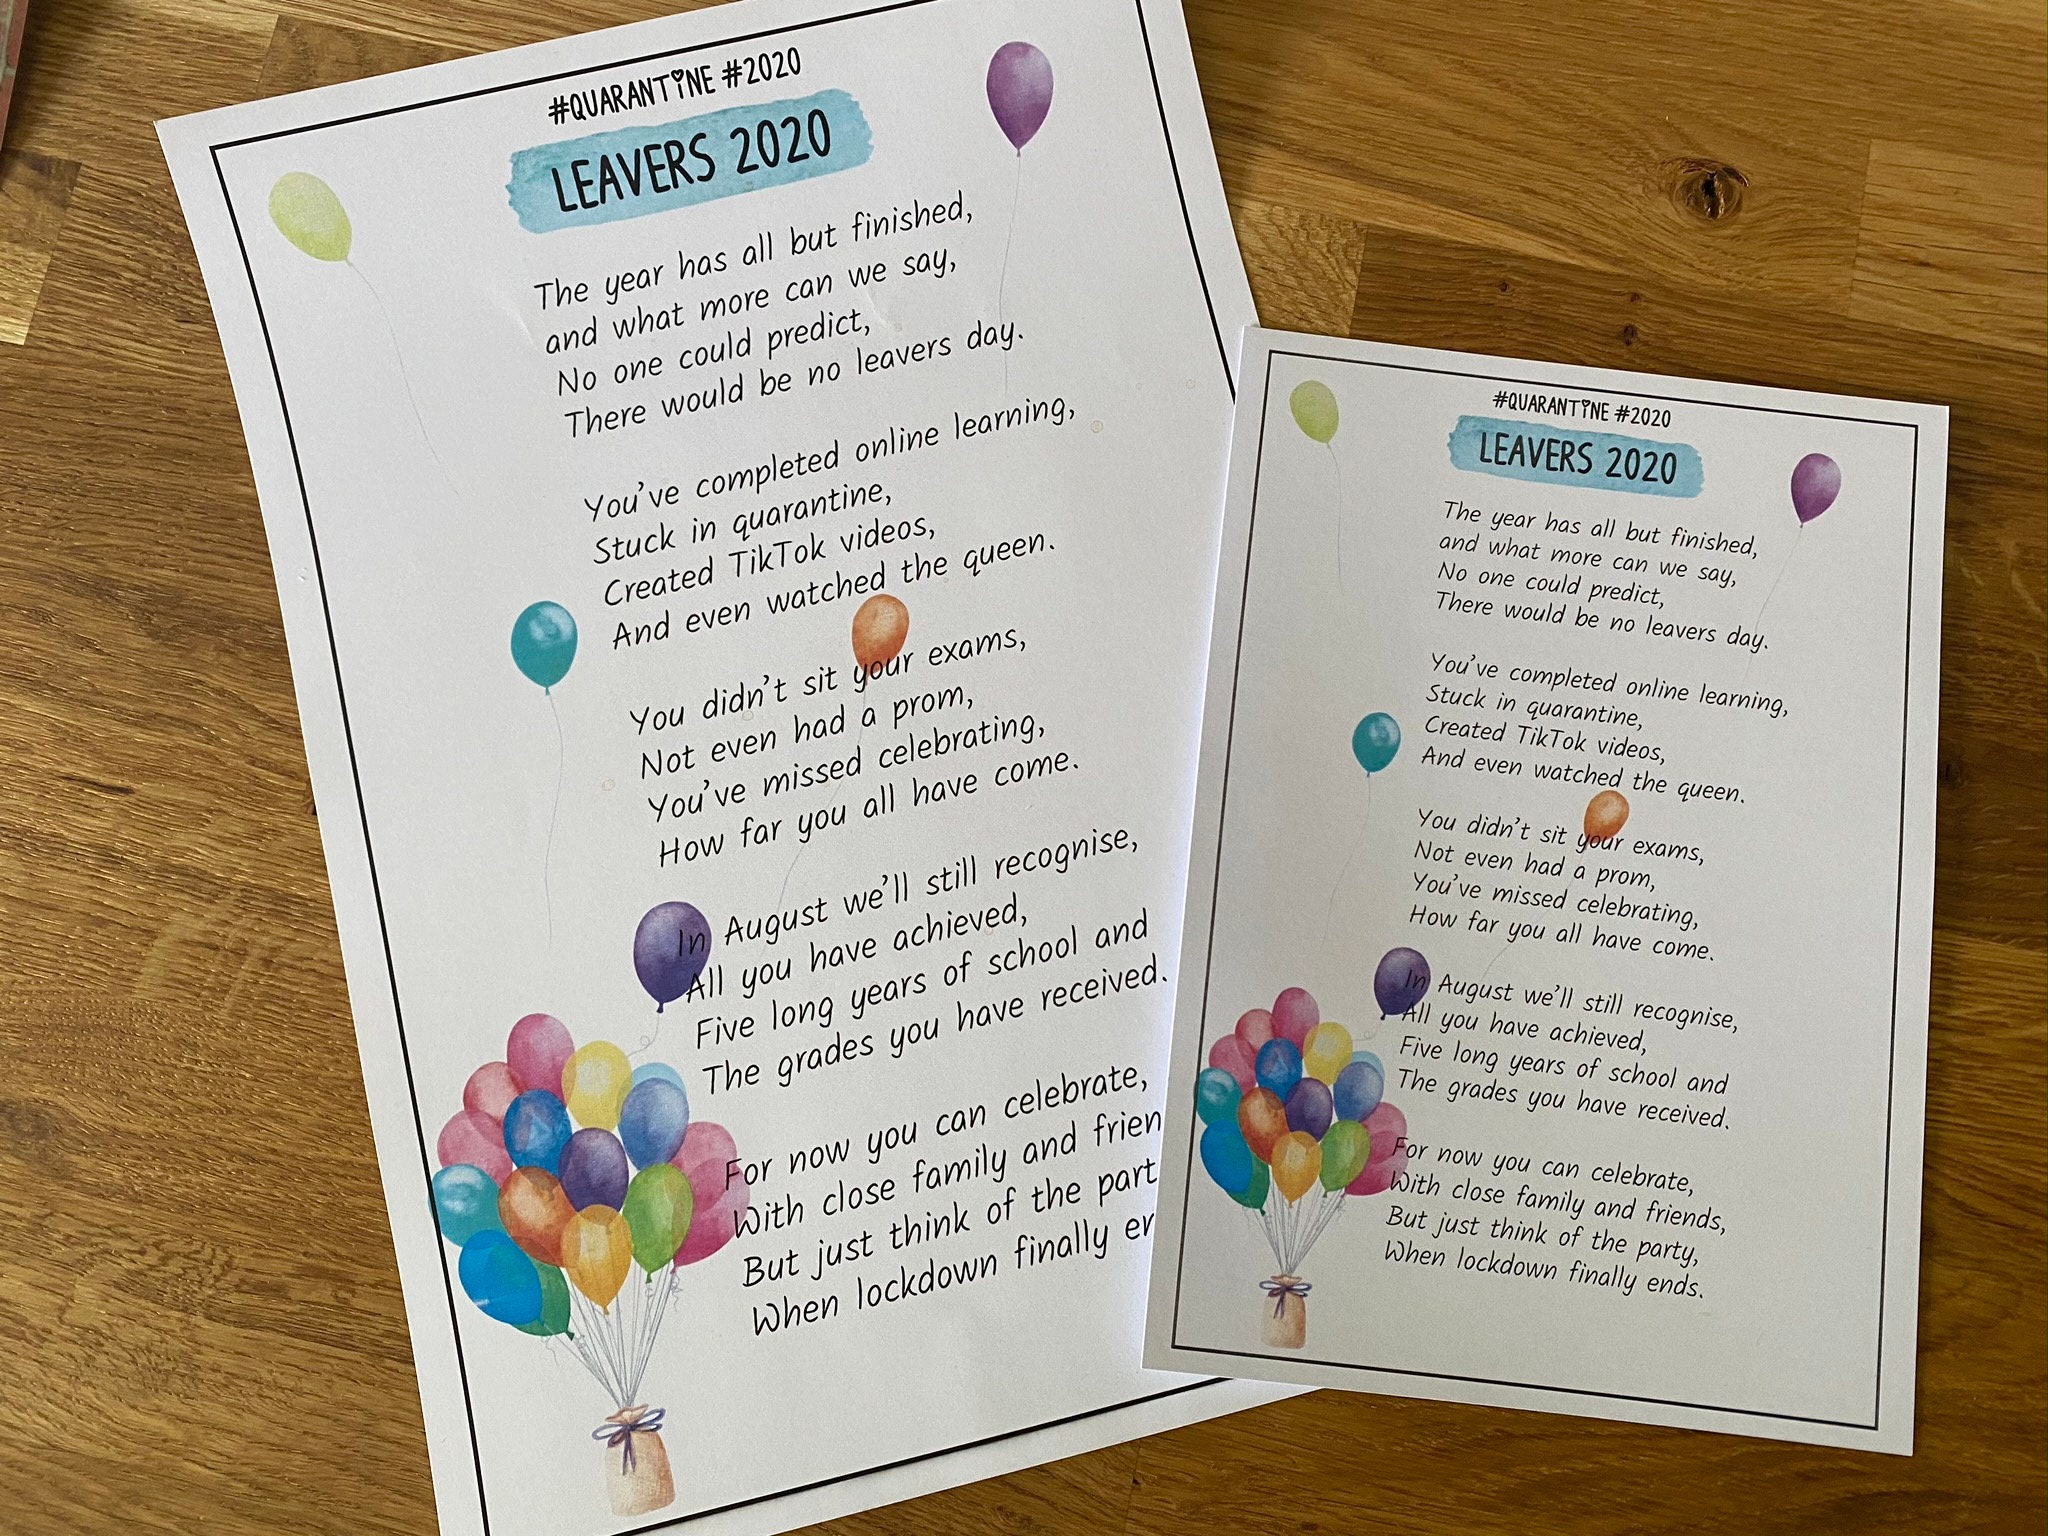 #QUARANTINE #2020
LEAVERS 2020
The year has all but finished,
and what more can we say,
No one could predict,
There would be no leavers day.
You've completed online learning,
Stuck in quarantine,
Created TikTok videos,
And even watched the queen.
You didn't sit your exams,
Not even had a prom,
You've missed celebrating,
How far you all have come.
In August we'll still recognise,
All you have achieved,
Five long years of school and
The grades you have received.
For now you can celebrate,
With close family and frien
But just think of the part
When lockdown finally
#QUARANTINE #2020
LEAVERS 2020
The year has all but finished,
and what more can we say,
No one could predict,
There would be no leavers day.
You've completed online learning,
Stuck in quarantine,
Created TikTok videos,
And even watched the queen.
You didn't sit your exams,
Not even had a prom,
You've missed celebrating,
How far you all have come.
In August we'll still recognise,
All you have achieved,
Five long years of school and
The grades you have received.
For now you can celebrate,
With close family and friends,
But just think of the party,
When lockdown finally ends.